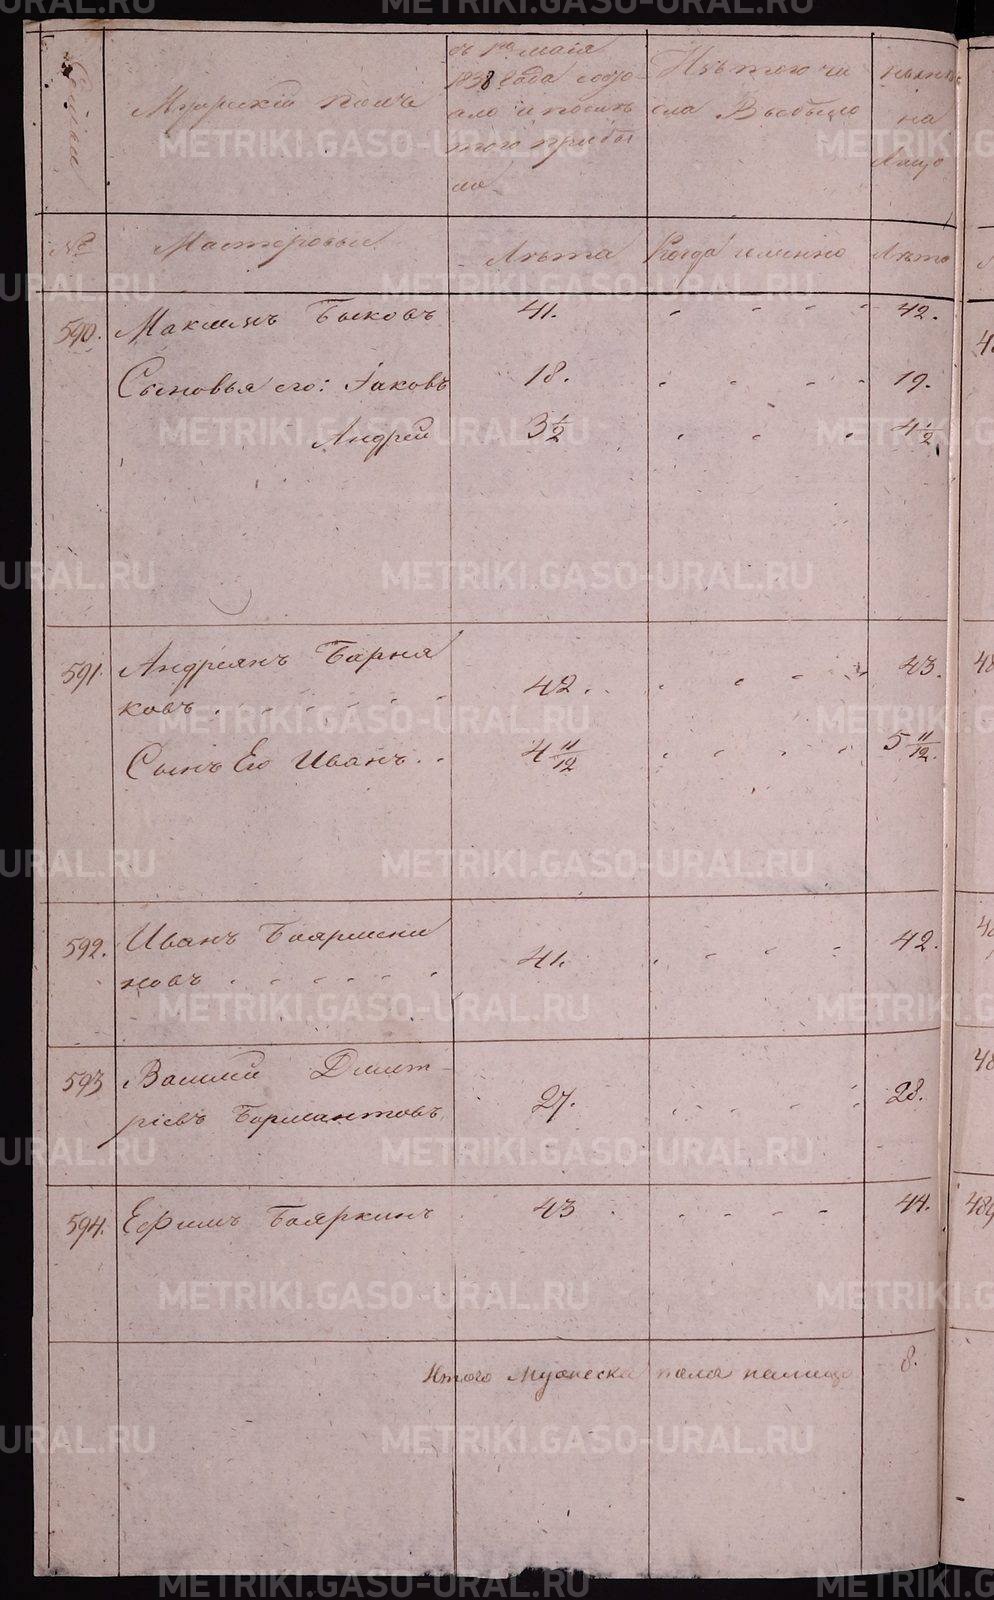 Семьи
Мужескiй полъ
съ 1го маiя
1838 года состо
яло и послѣ
того прибы
ло
Изъ того чи
сла Выбыло
нынѣ
на
Лицо
№
Мастеровые
Лѣта
Когда именно
Лѣта
590. Максимъ Быковъ 41. 42.
Сыновья его: Iаковъ 18. 19.
Андрей 3 1/2 4 1/2
591. Андреянъ Барня
ковъ 42. 43.
Сынъ Его Иванъ 4 11/12 5 11/12.
592. Иванъ Бояршени
новъ 41. 42.
593 Василiй Дмит
рiевъ Бормантовъ 27. 28.
594. Ефимъ Бояркинъ 43 44.
Итого Мужеска пола налицо 8.
METRIKI.GASO-URAL.RU